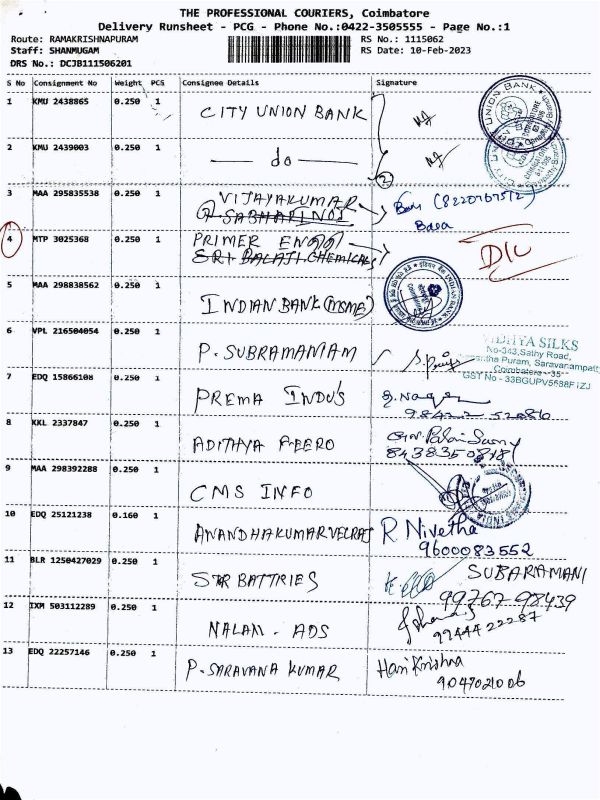 THE PROFESSIONAL COURIERS, Coimbatore
Delivery Runsheet - PCG - Phone No.:0422-3505555 - Page No.:1
Route: RAMAKRISHNAPURAM RS No.: 1115062
Staff: SHANMUGAM RS Date: 10-Feb-2023
DRS No.: DCJB111506201
S No Consignment No Weight PCS Consignee Details Signature
1 KMU 2438865 0.250 1 CITY UNION BANK
2 KMU 2439003 0.250 1 — do —
2
3 MAA 295835538 0.250 1 VIJAYAKUMAR
4 MTP 3025368 0.250 1 PRIMER
SRI BALAJI CHEMICALS
5 MAA 298838562 0.250 1 INDIAN BANK (MSME)
6 VPL 216504054 0.250 1 P. SUBRAMANIAM
VIDHYA SILKS
No-343,Sathy Road,
Puram, Saravanampatti
Coimbatore - 35
GST No - 33BGUPV5688F1ZJ
7 EDQ 15866108 0.250 1 PREMA INDU'S
8 KKL 2337847 0.250 1 ADITHYA
9 MAA 298392288 0.250 1 CMS INFO
10 EDQ 25121238 0.160 1 ANANDHAKUMAR VELRAJ R Nivetha
9600083552
11 BLR 1250427029 0.250 1 STAR BATTRIES SUBARAMANI
99767 98439
12 IXM 503112289 0.250 1 NALAM - ADS
9944422287
13 EDQ 22257146 0.250 1 P. SARAVANA KUMAR Hari Krishna
9047021006